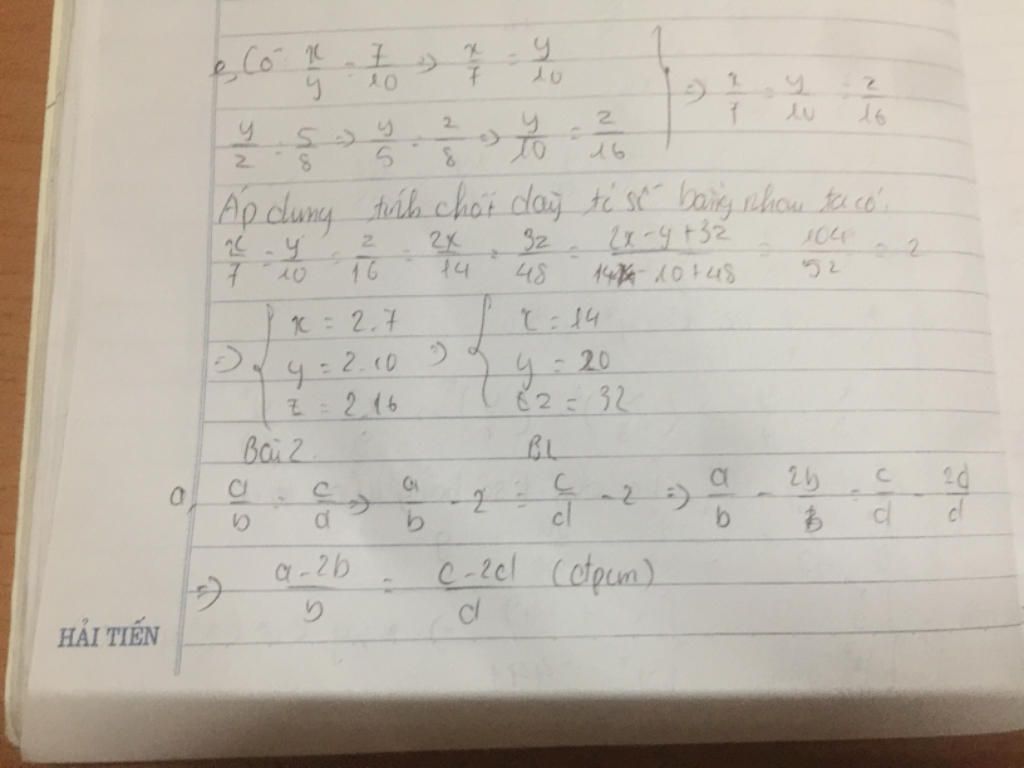 e, Có x/y = 7/10 => x/7 = y/10
y/z = 5/8 => y/5 = z/8 => y/10 = z/16
=> x/7 = y/10 = z/16
Áp dụng tính chất dãy tỉ số bằng nhau ta có
x/7 = y/10 = z/16 = 2x/14 = 3z/48 = (2x-y+3z)/(14-10+48) = 104/52 = 2
=> { x = 2.7 => { x = 14
y = 2.10 y = 20
z = 2.16 z = 32
Bài 2. BL
a, a/b = c/d => a/b - 2 = c/d - 2 => a/b - 2b/b = c/d - 2d/d
=> (a-2b)/b = (c-2d)/d (đpcm)
HẢI TIẾN